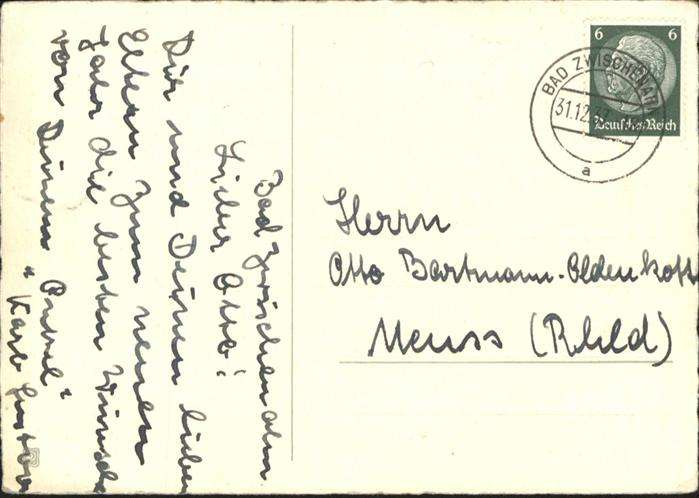 Bad Zwischenahn
Lieber Otto!
Dir und Deinen lieben
Eltern zum neuen
Jahr die besten Wünsche
von Deinem "Onkel"
Karl Gustav
6 6
Deutsches Reich
BAD ZWISCHENAHN
31.12.
a
Herrn
Otto Bartmann-Oldenkott
Neuss (Rhld)